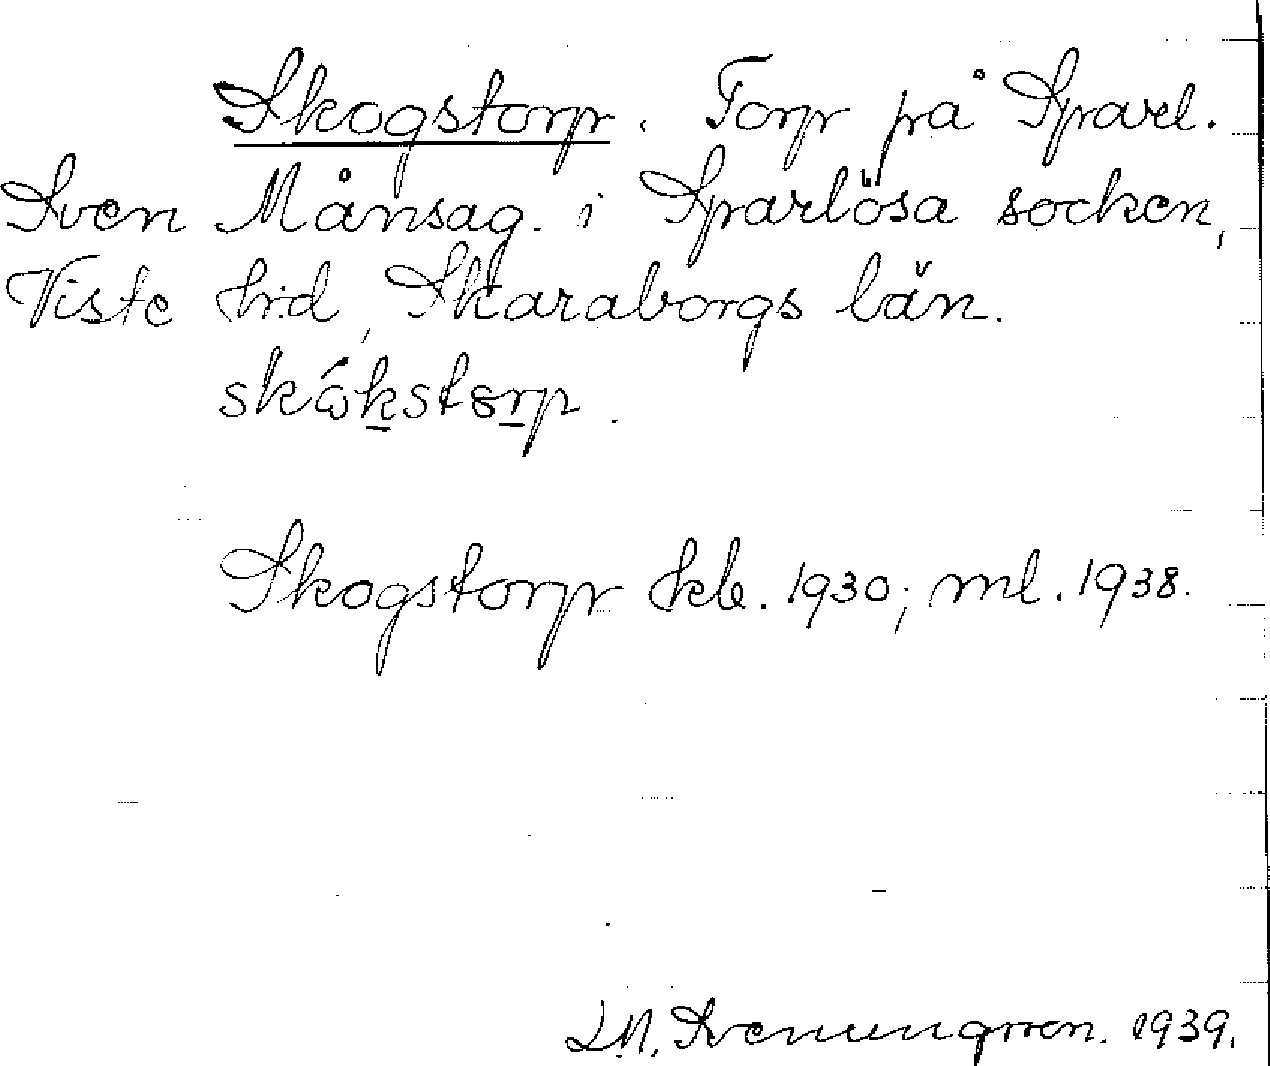 Skogstorp. Torp på Sparl.
Sven Månsag. i Sparlösa socken,
Viste hrd, Skaraborgs län.
skώkstorp.
Skogstorp kb. 1930; ml. 1938.
Svenungsson. 1939.